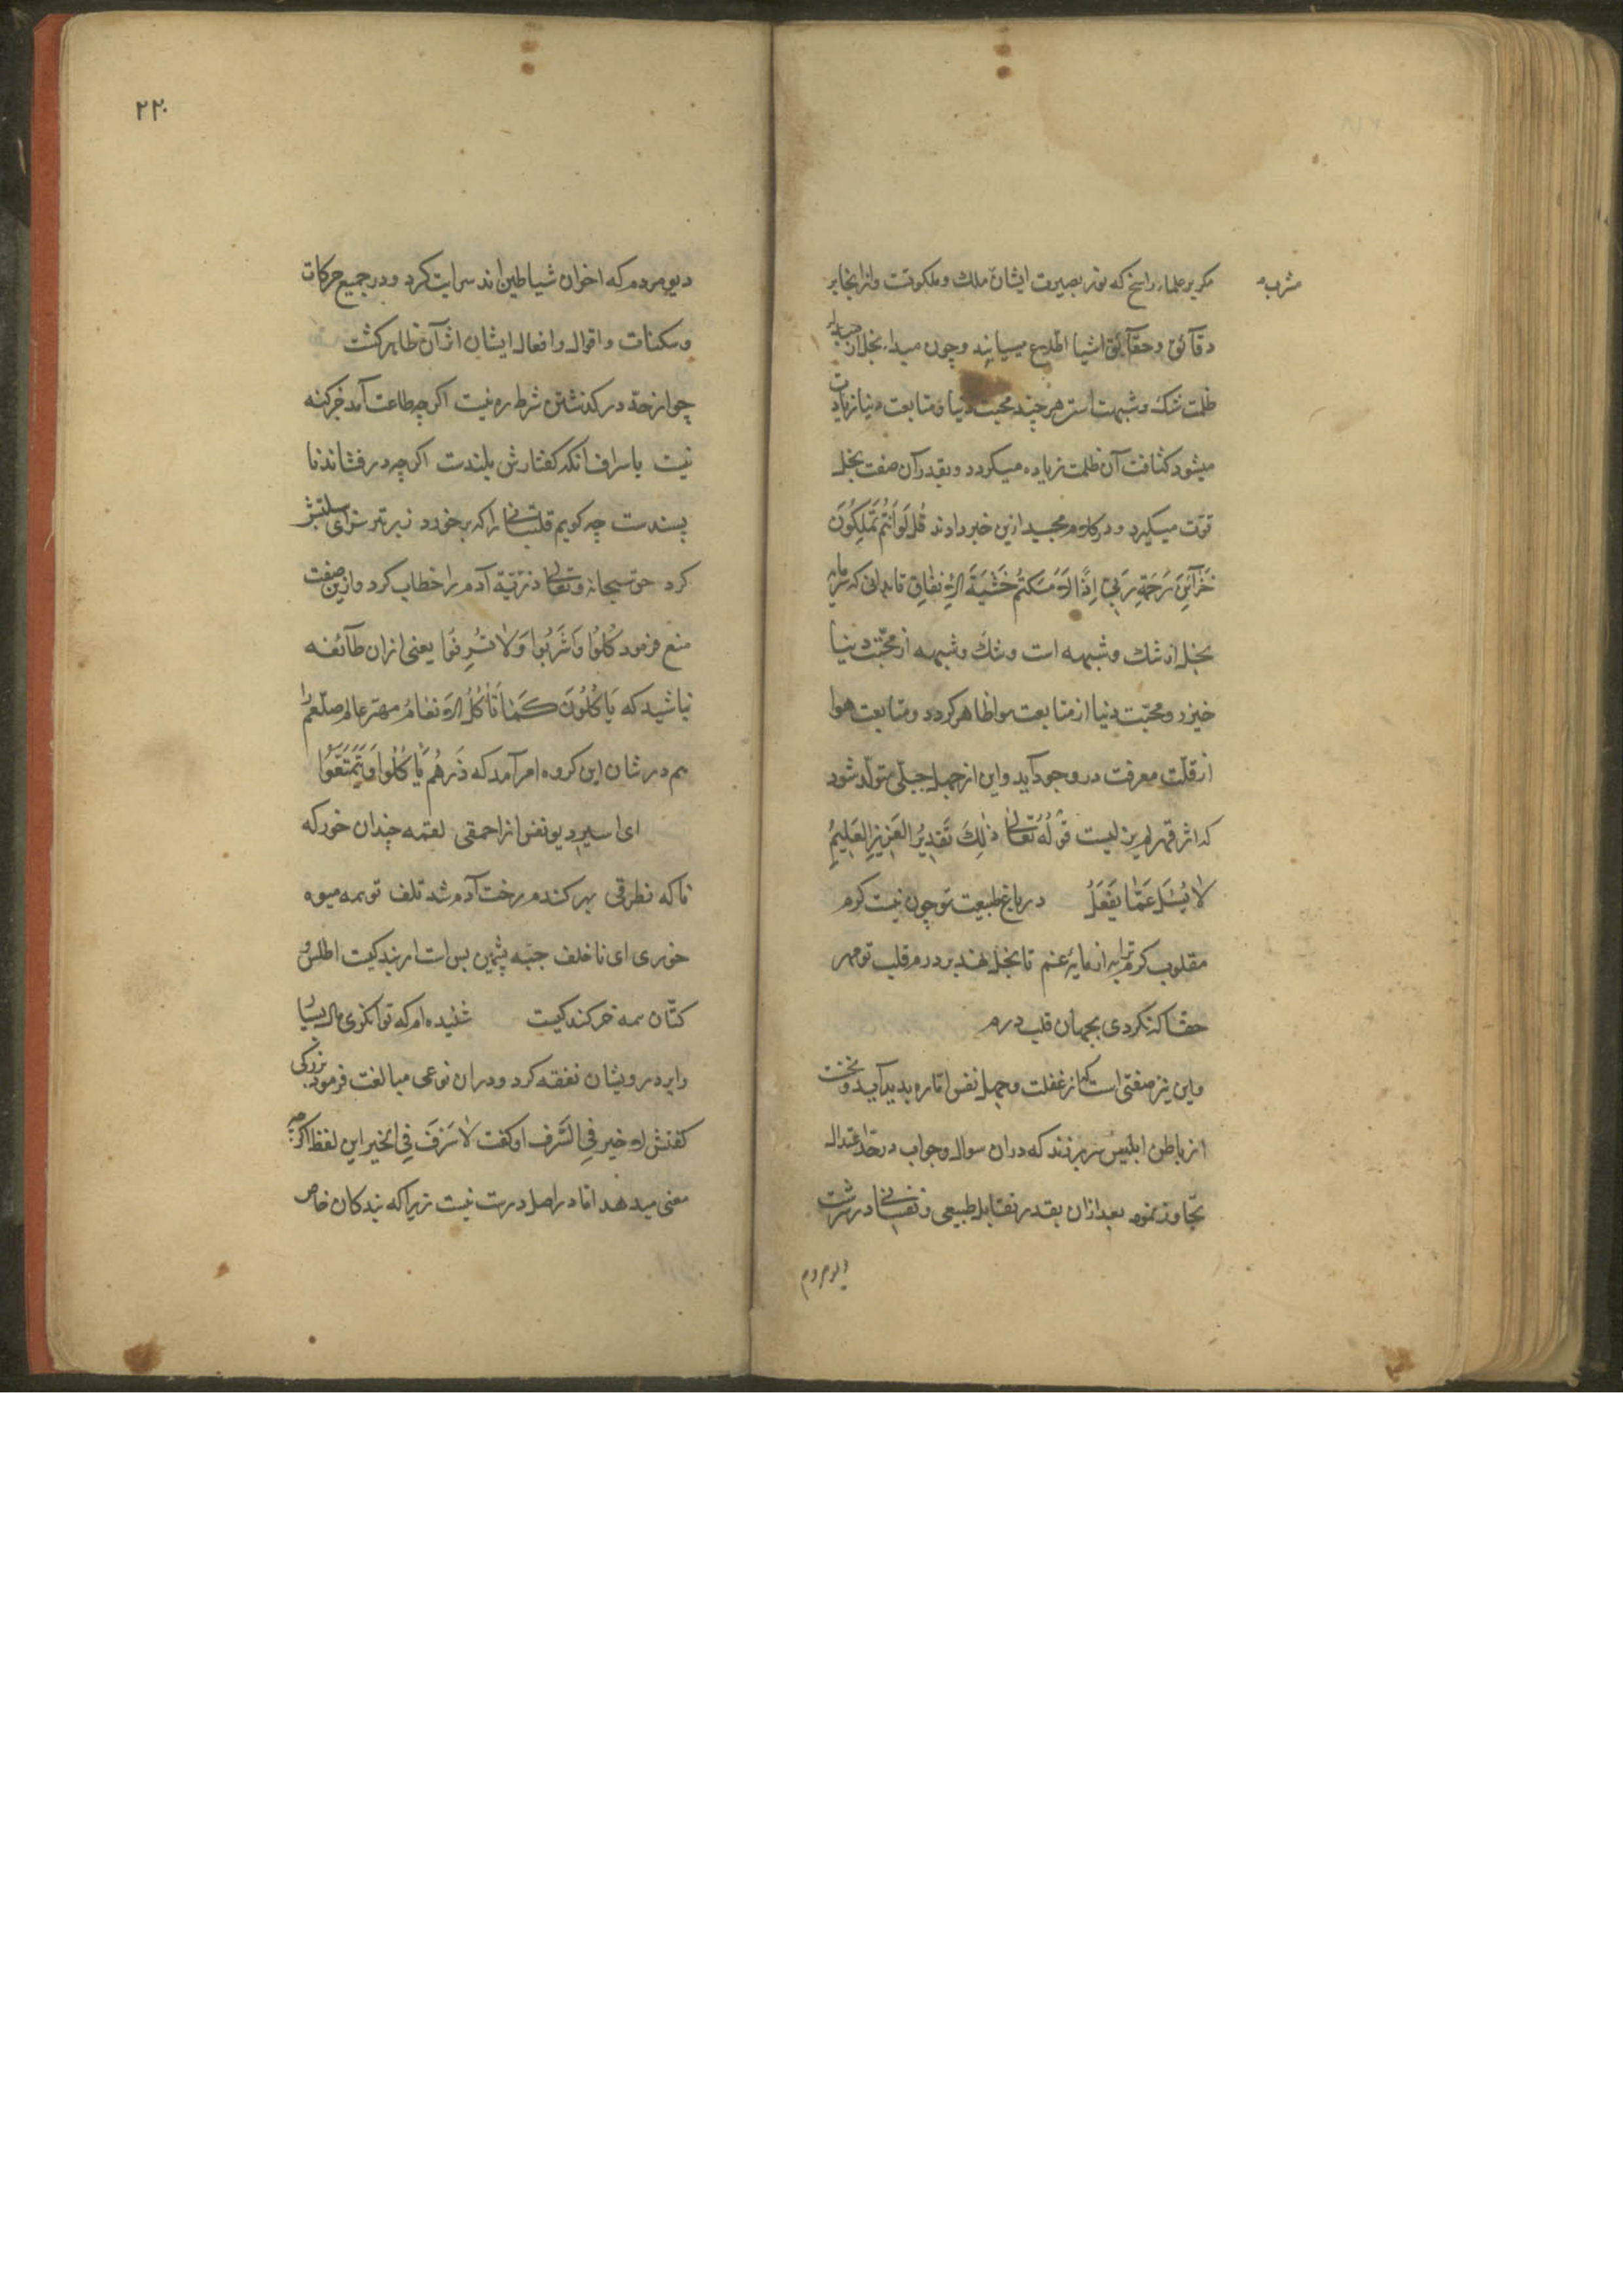 مگر بر علماء راسخ که نور بصیرت ایشان ملک و ملکوتست و از اینجا بر
مشرب
دقآئق و حقآئق اشیا اطلاع مییابند و چون مبداء بخل از
ظلمت شک و شبهت است هر چند محبت دنیا و متابعت دنیا زیادت
میشود کثافت آن ظلمت زیاده میگردد و بقدر آن صفت بخل
قوّت میگیرد و در کلام مجید ازین خبر دادند قُل لَو اَنتُم تَملِکُونَ
خَزآئِنَ رَحمَةِ رَبّی اِذًا لَاَمسَکتُم خَشیَةَ الاِنفاقِ تا بدانی که
بخل از شک و شبهه است و شک و شبهه از محبّت دنیا
خیزد و محبّت دنیا از متابعت هوا ظاهر گردد و متابعت هوا
از قلّت معرفت در وجود آید و این از جهل جبلّی متولّد شود
که اثر قهر لم یزلیست قولُهُ تعالی ذٰلِکَ تَقدِیرُ العَزِیزِ العَلِیمُ
لا یُسئَلُ عَمّا یَفعَلُ در باغ طبیعت تو چون نیست کرم
مقلوب کرم ترا به از مایهٔ غم تا بخل نهد بر درم قلب تو مهر
حقا که نگردی بجهان قلب درم
و این نیز صفتی است که از غفلت و جهل نفس اماره پدید آید و نخست
از باطن ابلیس سر بر زند که در آن سوال و جواب در حدّ اعتدال
تجاوز نمود بعد از آن بقدر تقابل طبیعی و نفسانی در سرشت
دیو مردم
٢٢٠
دیو مردم که اخوان شیاطین اند سرایت کرد و در جمیع حرکات
و سکنات و اقوال و افعال ایشان اثر آن ظاهر گشت
چو از حدّ در گذشتن شرط ره نیست اگر چه طاعت آمد جز گنه
نیست باسراف آنکه گفتارش بلندست اگر چه در فشاند نا
پسندست چه گویم قلتبانی را که بر خورد
کرد حق سبحانه و تعالی ذرّیّهٔ آدم را خطاب کرد و ازین صفت
منع فرمود کُلُوا وَاشرَبُوا وَلا تُسرِفُوا یعنی از آن طآئفه
نباشید که یَاکُلُونَ کَمٰا تَأکُلُ الاَنعٰامُ مهتر عالم صلّعم را
هم در شان این گروه امر آمد که ذَرهُم یَأکُلُوا وَیَتَمَتَّعُوا
ای اسیر دیو نفس از احمقی لقمه چندان خور که
تا که نطرقی بهر گندم رخت آدم شد تلف تو همه میوه
خوری ای ناخلف جبّه پشمین بس است ار بندگیت اطلس و
کتّان همه خر کندگیست شنیده‌ام که توانگری مال بسیار
را بر درویشان نفقه کرد و در آن نوعی مبالغت فرمود بزرگی
گفتش لا خیر فی السَّرف او گفت لا سَرَفَ فی الخیر این لفظ اگر چه
معنی میدهد اما در اصل درست نیست زیرا که بندگان خاص